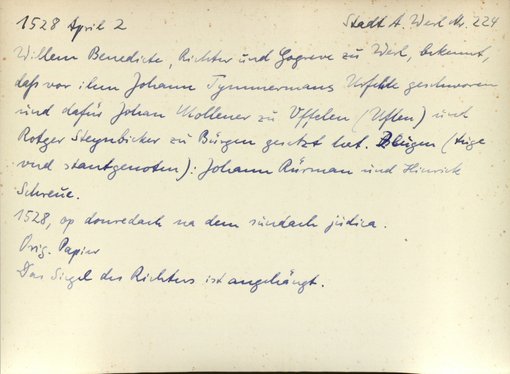 1528 April 2 Stadt A. Werl Nr. 224
Willem Benedicte, Richter und Gogreve zu Werl, bekennt,
daß vor ihm Johann Tymmermans Urfehde geschworen
und dafür Johan Mollener zu Uffelen (Uflen) und
Rotger Steynbicker zu Bürgen gesetzt hat. Zeugen (tüge
vnd stantgenoten): Johann Rürman und Hinrick
Schreue.
1528, op donredach na dem sundach judica.
Orig. Papier
Das Siegel des Richters ist angehängt.